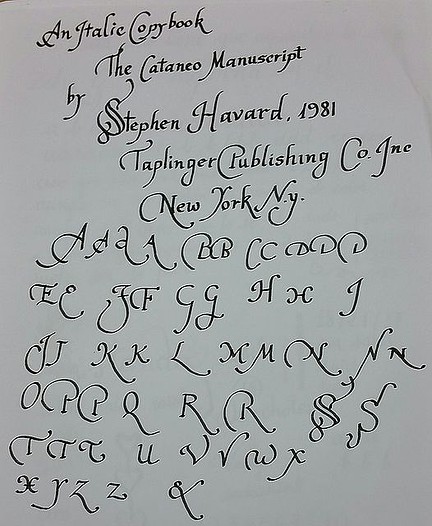 An Italic Copybook
The Cataneo Manuscript
by
Stephen Havard, 1981
Taplinger Publishing Co. Inc
New York N.y.
A A A A B B C C D D D
E E F F G G H H I
J J K K L M M N N N
O P P Q R R S S
T T T U V V W X
X Y Z Z &